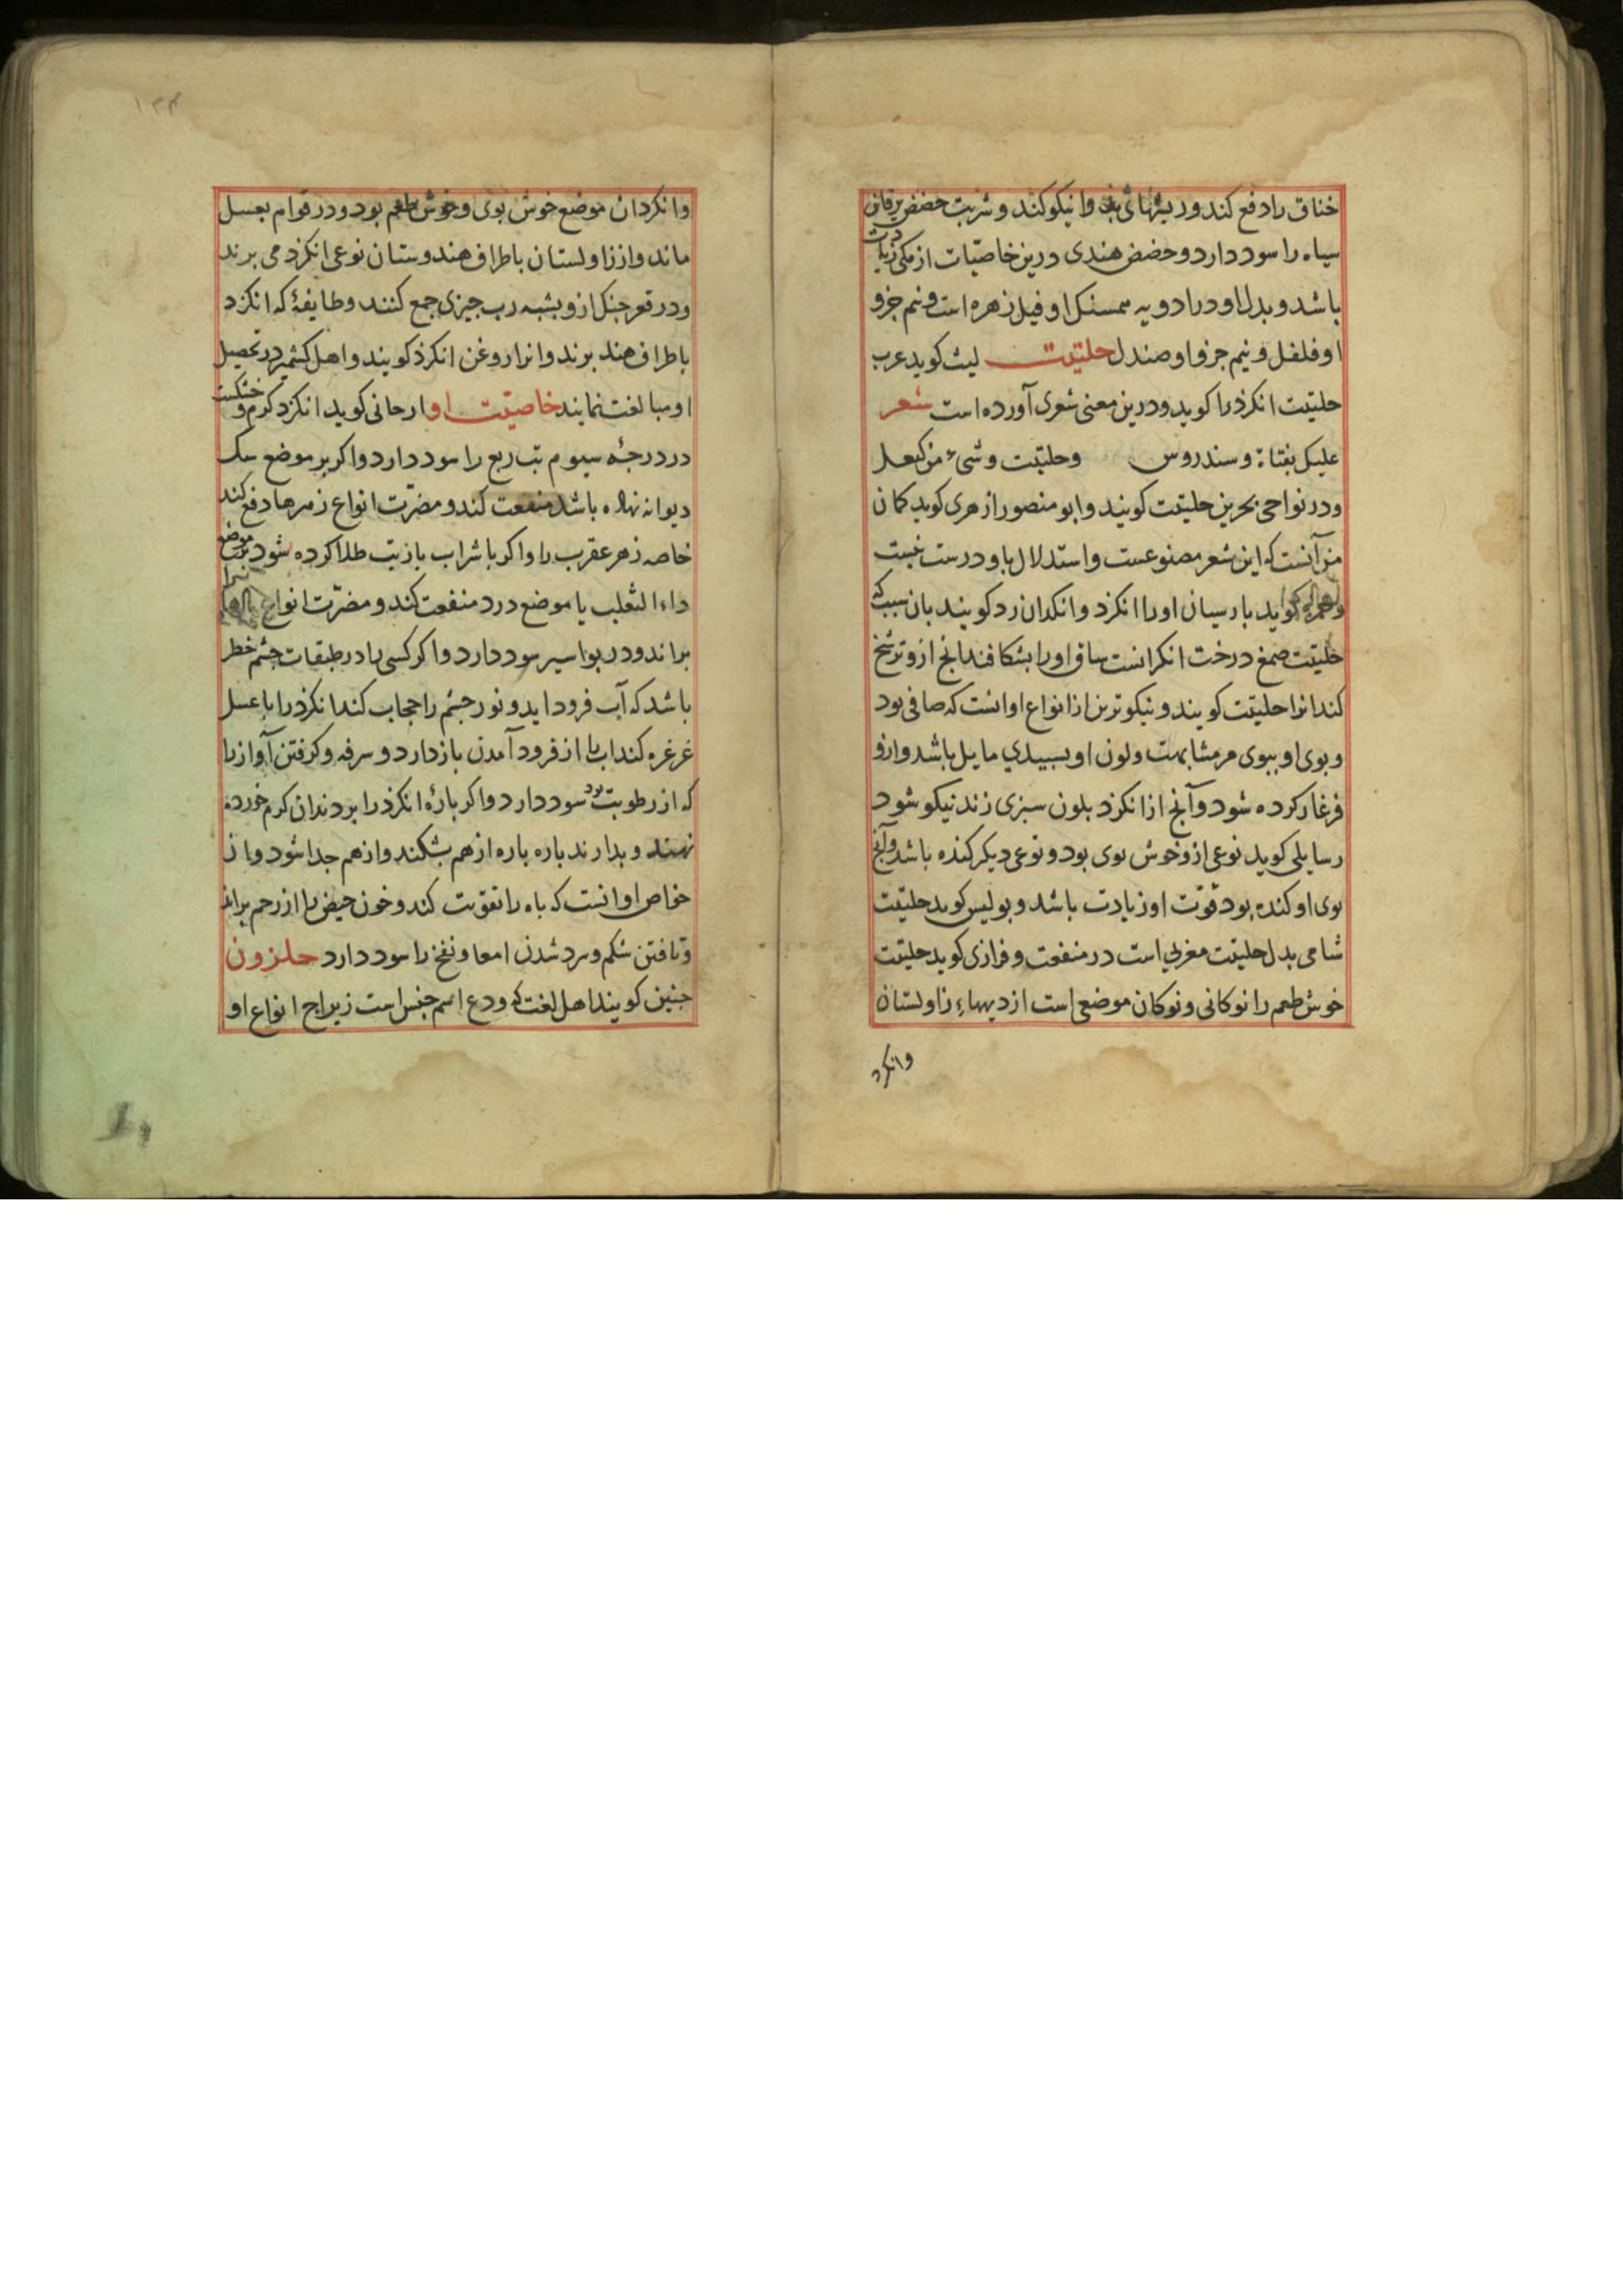 خناق را دفع کند و ریشهای را نیکو کند و شربت حضض یرقان
سیاه را سود دارد و حضض هندی درین خاصیات از مکی زیادت
باشد و بدل او در ادویه همسنک او فیل زهره است و نیم جزو
او فلفل و نیم جزو او صندل حلتیت لیث کوید عرب
حلتیت انکرذ را کوید و درین معنی شعری آورده است شعر
علیک بقناة و سندروس وحلتیت وشیء من کنعد
و در نواحی بحرین حلتیت کویند و ابو منصور ازهری کوید کمان
من آنست که این شعر مصنوعست و استدلال باو درست نیست
کوید بارسیان اورا انکزد و انکدان زد کویند بان سبب که
حلتیت صمغ درخت انکرانست ساق اورا بشکافند انج ازو ترشح
کند انرا حلتیت کویند و نیکوترین از انواع او انست که صافی بود
و بوی او ببوی مر مشابهت و لون او بسبیدی مایل باشد و ازو
فرغار کرده شود و آنج از انکزد بلون سبزی زند نیکو شود
رسایلی کوید نوعی ازو خوش بوی بود و نوعی دیکر کنده باشد و آنج
بوی او کنده بود قوت او زیادت باشد و بولیس کوید حلتیت
شامی بدل حلتیت مغربی است در منفعت و فزاری کوید حلتیت
خوش طعم را نوکانی و نوکان موضعی است از دیهاء زاولستان
وانکرد
۱۳۴
وانکردان موضع خوش بوی و خوش طعم بود و در قوام بعسل
ماند و از زاولستان باطراف هندوستان نوعی انکزد می برند
و در قعر خنک ازو بشبه رب جیزی جمع کنند و طایفهٔ که انکزد
باطراف هند برند و انرا روغن انکرذ کویند و اهل کشمیر در تحصیل
او مبالغت نمایند خاصیت او ارجانی کوید انکزد کرم و خشکست
در درجهٔ سیوم تب ربع را سود دارد و اکر بر موضع سک
دیوانه نهاده باشد منفعت کند و مضرت انواع زهرها دفع کند
خاصه زهر عقرب را و اکر با شراب یا زیت طلا کرده شود بر موضع
داء الثعلب یا موضع درد منفعت کند و مضرت انواع
براند و در بواسیر سود دارد و اکر کسی را در طبقات چشم خطر
باشد که آب فرود اید و نور جشم را حجاب کند انکزذ را با عسل
غرغره کند اب را از فرود آمدن باز دارد و سرفه و کرفتن آواز را
که از رطوبت بود سود دارد و اکر بارهٔ انکزذ را بر دندان کرم خورده
نهند و بدارند باره باره از هم بشکند و از هم جدا شود و از
خواص او انست که باه را تقویت کند و خون حیض را از رحم براند
و تافتن شکم و سرد شدن امعا و نفخ را سود دارد حلزون
جنین کویند اهل لغت که ودع اسم جنس است زیراج انواع او